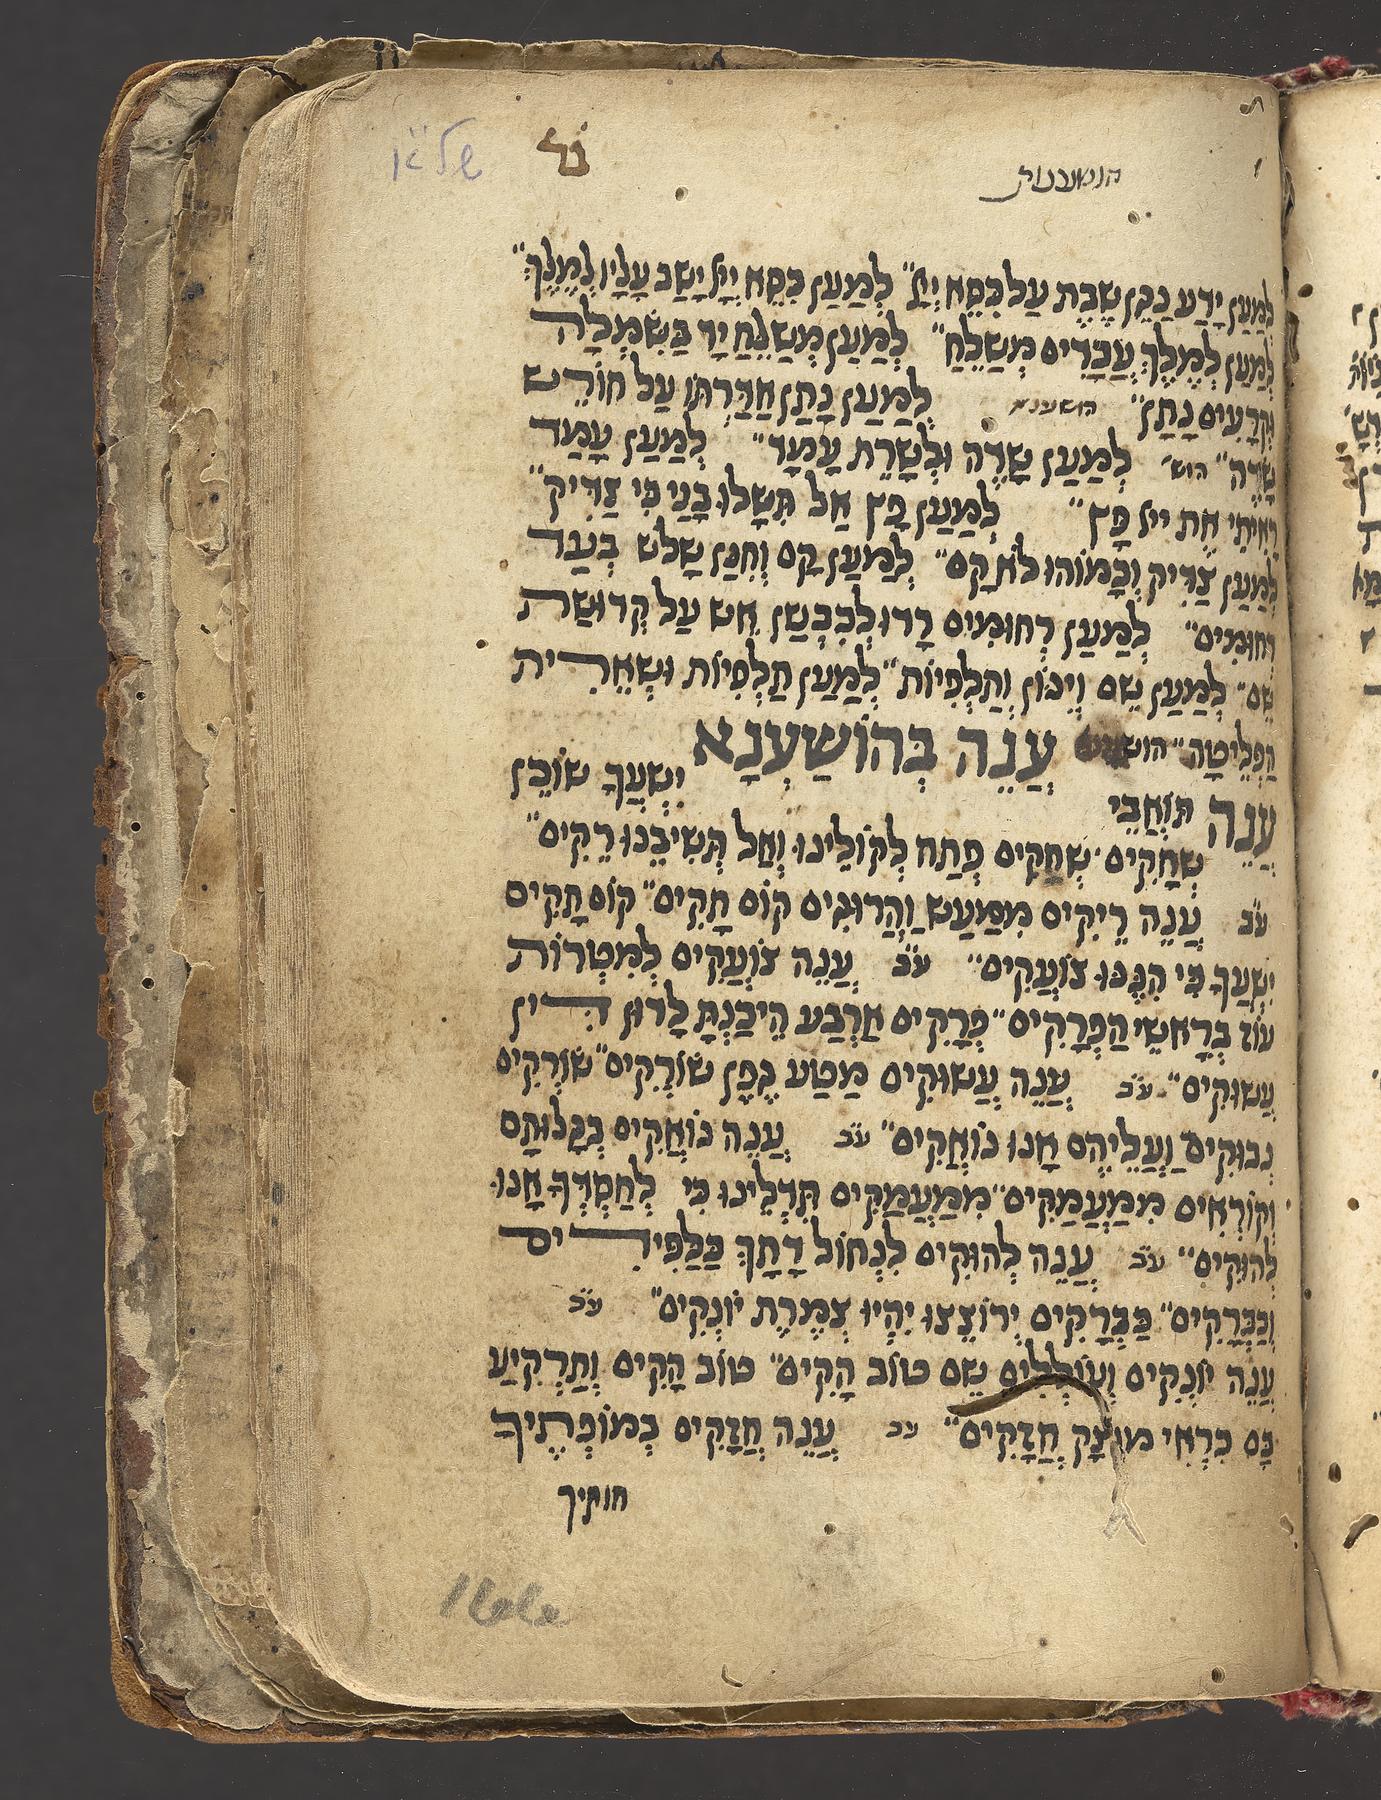 של״א
הושענות
לְמַעַן יָדַע נַגֵּן שֶׁבֶת עַל כִּסֵּא יְיָ״ לְמַעַן כִּסֵּא יְיָ יָשַׁב עָלָיו לְמֶלֶךְ״
לְמַעַן לְמֶלֶךְ עֲבָדִים מְשַׁלֵּחַ״ לְמַעַן מְשַׁלֵּחַ יָד בַּשִּׂמְלָה
וּקְרָעִים נָתַן״ הושענא לְמַעַן נָתַן חֲדַּרְתּוֹ עַל חוֹרֵשׁ
שָׂדֶה״ הוש׳ לְמַעַן שָׂדֶה וּלְשָׁרֵת עָמָד״ לְמַעַן עָמַד
רָאִיתִי אֶת ייי פָּץ״ לְמַעַן פָּץ אַל תִּשָּׁלוּ בָּנַי כִּי צַדִּיק״
לְמַעַן צַדִּיק וְכָמוֹהוּ לֹא קָם״ לְמַעַן קָם וְחִנַּן שָׁלֹשׁ בְּעַד
רְחוּמִים״ לְמַעַן רְחוּמִים רָדוּ לְכִבְשַׁן אֵשׁ עַל קְדוּשַׁת
שֵׁם״ לְמַעַן שֵׁם וְיִכּוֹן וְתַלְפִּיּוֹת״ לְמַעַן תַּלְפִּיּוֹת וּשְׁאֵרִית
הַפְּלֵיטָה״ הוש עֲנֵה בְּהוֹשַׁעְנָא
עֲנֵה תּוֹאֲבֵי יִשְׁעֲךָ שׁוֹכֵן
שְׁחָקִים״ שְׁחָקִים פְּתַח לְקוֹלֵינוּ וְאַל תְּשִׁיבֵנוּ רֵקִים״
ע״ב עֲנֵה רֵיקִים מִמַּעַשׂ וַהֲרוּגִים קוֹם חָקִים״ קוֹם חָקִים
יִשְׁעֲךָ כִּי הִנְּנוּ צוֹעֲקִים״ ע״ב עֲנֵה צוֹעֲקִים לְמִטְרוֹת
עוֹז בְּרָאשֵׁי הַפְּרָקִים״ פְּרָקִים אַרְבַּע הֵיכַנְתָּ לָדוּן דִּין
עֲשׁוּקִים״ ע״ב עֲנֵה עֲשׁוּקִים מַטַּע גֶּפֶן שׂוֹרֵקִים״ שׂוֹרֵקִים
נְבוּקִים וַעֲלֵיהֶם אָנוּ נוֹאֲקִים״ ע״ב עֲנֵה נוֹאֲקִים בְּגָלוּתָם
וְקוֹרְאִים מִמַּעֲמַקִּים״ מִמַּעֲמַקִּים תִּדְלֵינוּ כִּי לְחַסְדְּךָ אָנוּ
לְהוּקִים״ ע״ב עֲנֵה לְהוּקִים לִנְחוֹל דָּתָךְ כַּלַּפִּידִים
וְכַבְּרָקִים״ כַּבְּרָקִים יְרוֹצֵצוּ יִהְיוּ צְמֶרֶת יוֹנְקִים״ ע״ב
עֲנֵה יוֹנְקִים וְעוֹלְלִים שֵׁם טוֹב הָקִים״ טוֹב הָקִים וְתַרְקִיעַ
בָּם כִּרְאִי מוּצָק חֲזָקִים״ ע״ב עֲנֵה חֲזָקִים בְּמוֹפְתֶיךָ
חותיך